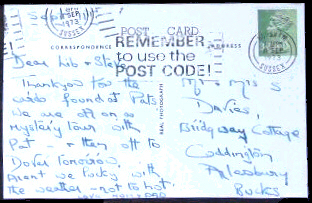 SEP 1973
SUSSEX
POST CARD
REMEMBER
to use the
POST CODE!
CORRESPONDENCE
ADDRESS
1973
SUSSEX
Dear Lib +
Thankyou for the
video found at Pat's
We are off on a
Mystery Tour with
Pat - + then off to
Dover Tomorrow,
Arent we lucky with
the weather - not to hot!
REAL PHOTOGRAPH
Mr + Mrs S
Davies,
Bridgway Cottage
Cuddington
Aylesbury
Bucks